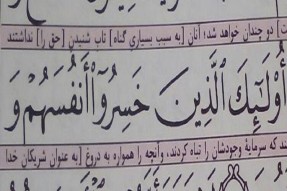 ] دو چندان خواهد شد؛ آنان [به سبب بسیاری گناه] تاب شنیدنِ [حق را] نداشتند
أُولَٰئِكَ الَّذِينَ خَسِرُوٓا۟ أَنفُسَهُمْ وَ
ند که سرمایهٔ وجودشان را تباه کردند، وآنچه را همواره به دروغ [به عنوان شریکان خدا